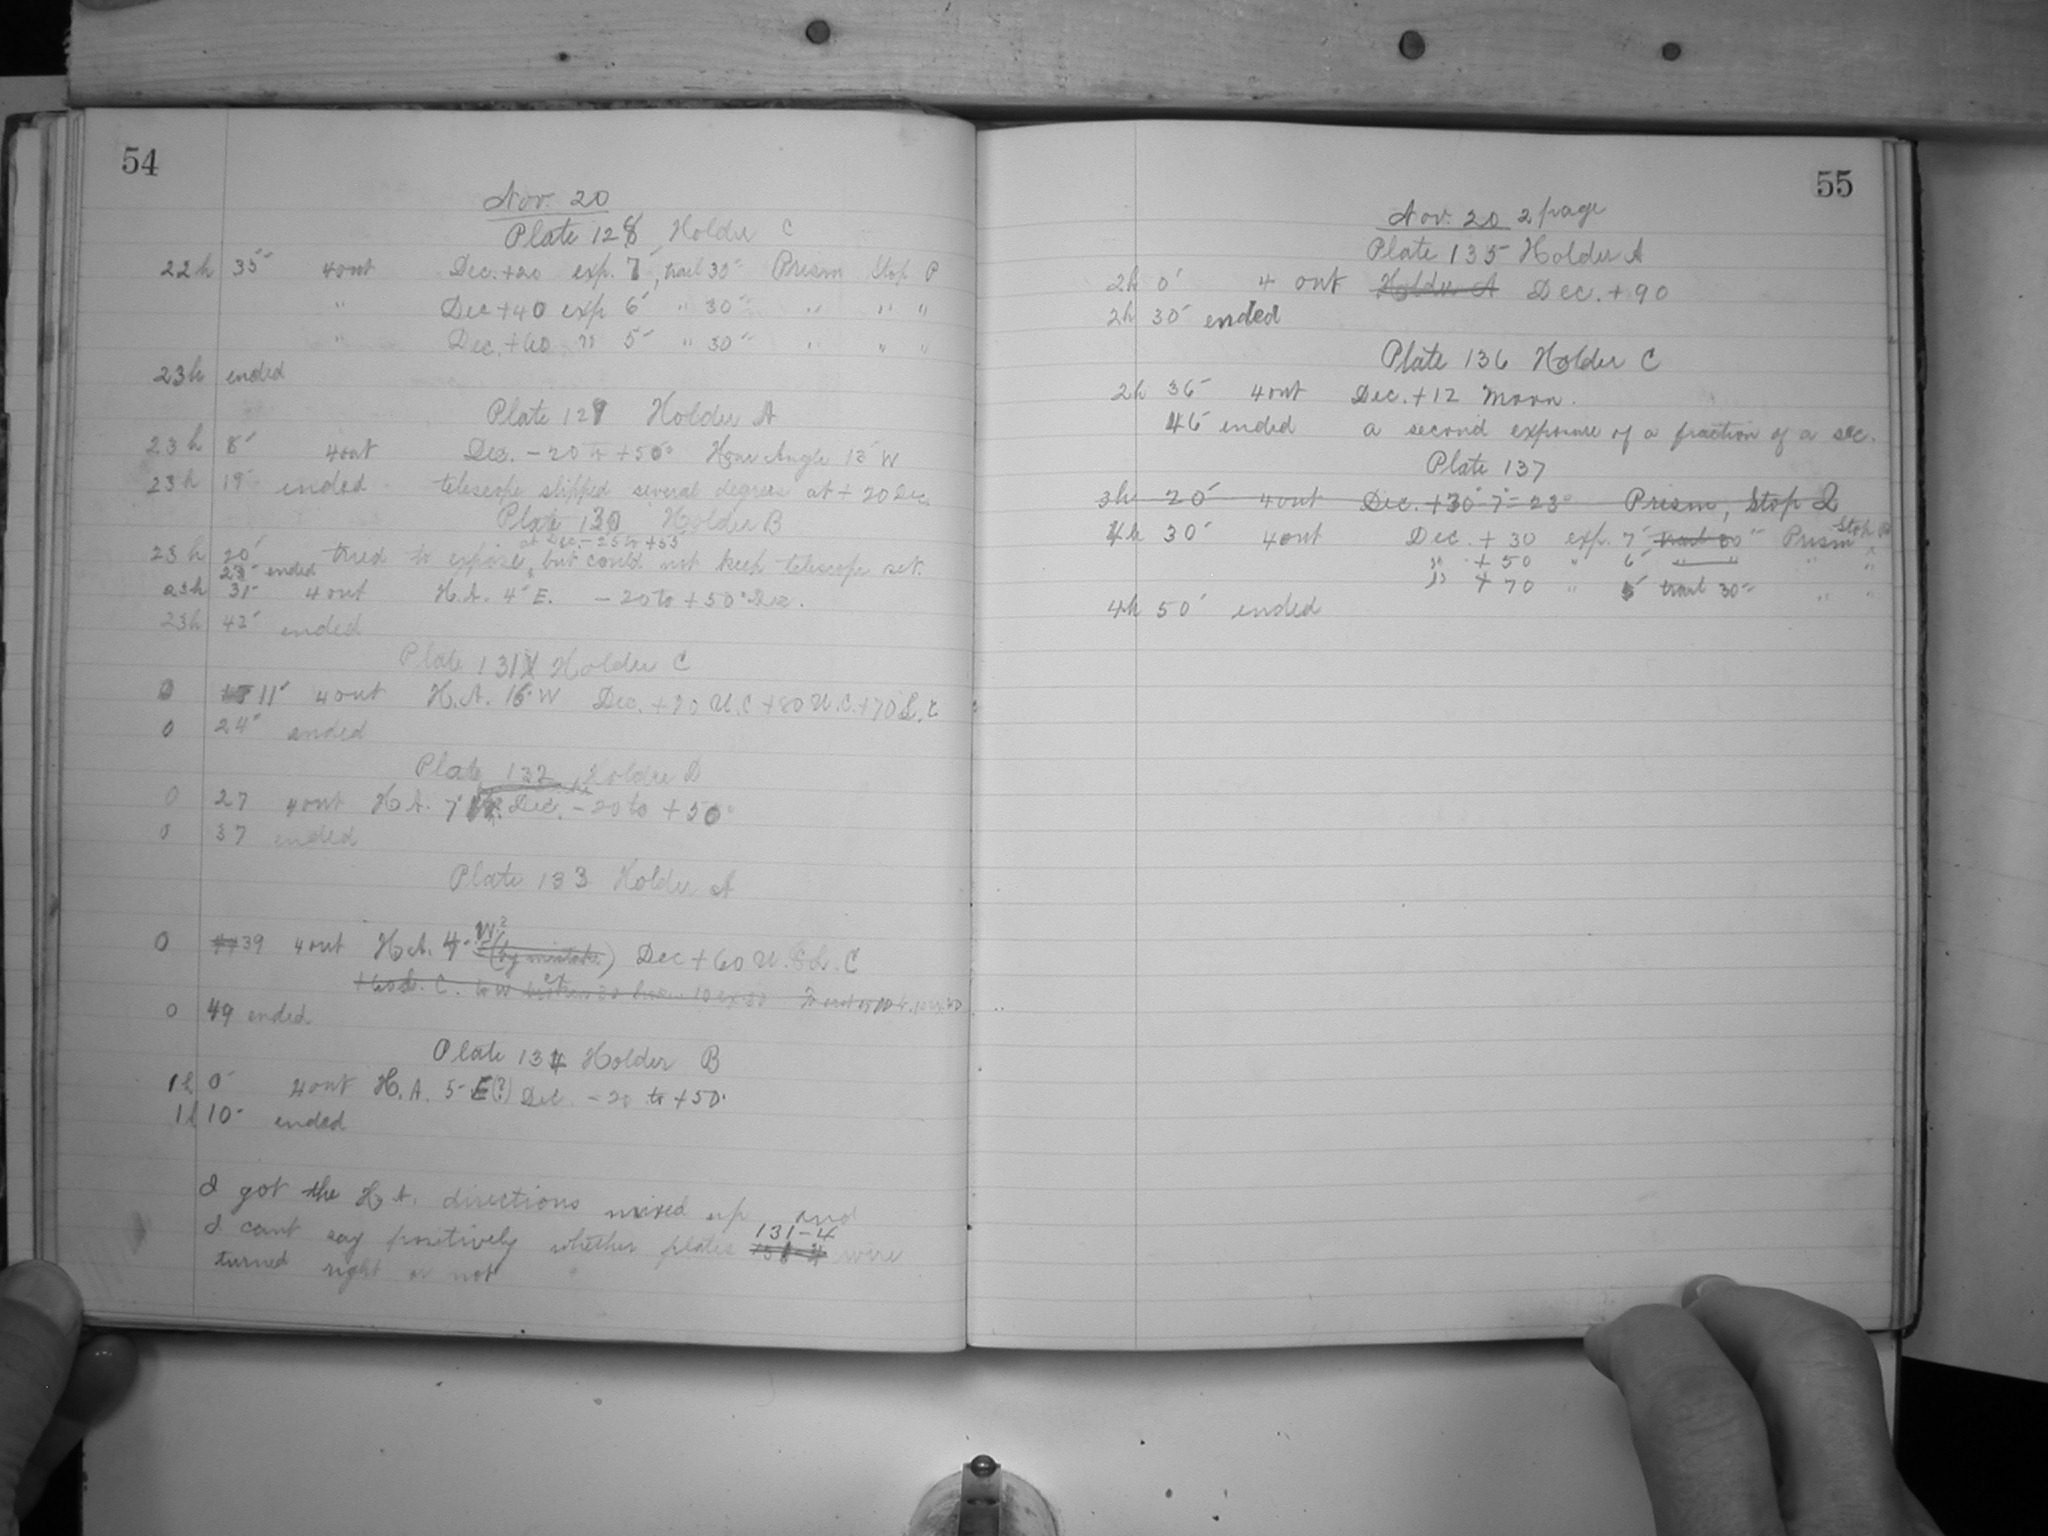 54
Nov. 20
Plate 128 Holder C
22h 35' 4 out Dec. +20 exp. 7', trail 30" Prism Stop P
" Dec +40 exp 6' " 30" " " "
" Dec. +60 " 5' " 30" " " "
23h ended
Plate 129 Holder A
23h 8' 4 out Dec. -20 to +50° Hour Angle 15' W
23h 19' ended telescope slipped several degrees at +20 Dec.
Plate 130 Holder B
at Dec. -25 to +55
23h 20' tried to expose, but could not keep telescope set.
23' ended
23h 31' 4 out H.A. 4' E. -20 to +50° Dec.
23h 42' ended
Plate 131 Holder C
0 11' 4 out H.A. 16' W Dec. +70 U.C +80 U.C. +70 L.C
0 24' ended
Plate 132 Holder D
0 27 4 out H.A. 7' Dec. -20 to +50°
0 37 ended
Plate 133 Holder A
0 39 4 out H.A. 4' W.? (by mistake) Dec +60 U. & L. C
0 49 ended.
Plate 134 Holder B
1h 0' 4 out H.A. 5' E(?) Dec. -20 to +50.
1h 10' ended
I got the H A. directions mixed up and
I cant say positively whether plates 131-4 were
turned right or not
55
Nov. 20 2 page
Plate 135 Holder A
2h 0' 4 out Holder A Dec. +90
2h 30' ended
Plate 136 Holder C
2h 36' 4 out Dec. +12 Moon.
46' ended a second exposure of a fraction of a sec.
Plate 137
3h 20' 4 out Dec. +30° 7° = 23° Prism, Stop 2
4h 30' 4 out Dec. +30 exp. 7' trail 30" Prism Stop
" +50 " 6' " " " "
" +70 " 5' trail 30" " "
4h 50' ended